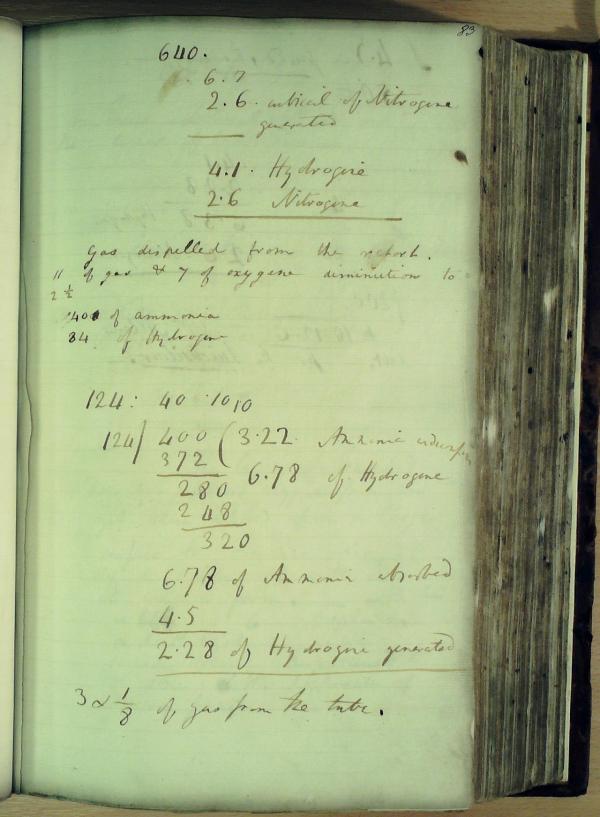 83
640.
6.7
2.6. cubical of Nitrogene
generated
4.1. Hydrogene
2.6 Nitrogene
Gas dispelled from the retort.
11 of gas & 7 of oxygene diminution to
2 1/2
40 of ammonia
84 of Hydrogene
124: 40 :10
124/ 400 ( 3.22. Ammonia
372
280 6.78 of Hydrogene
248
320
6.78 of Ammonia absorbed
4.5
2.28 of Hydrogene generated
3 1/8 of gas from the tube.